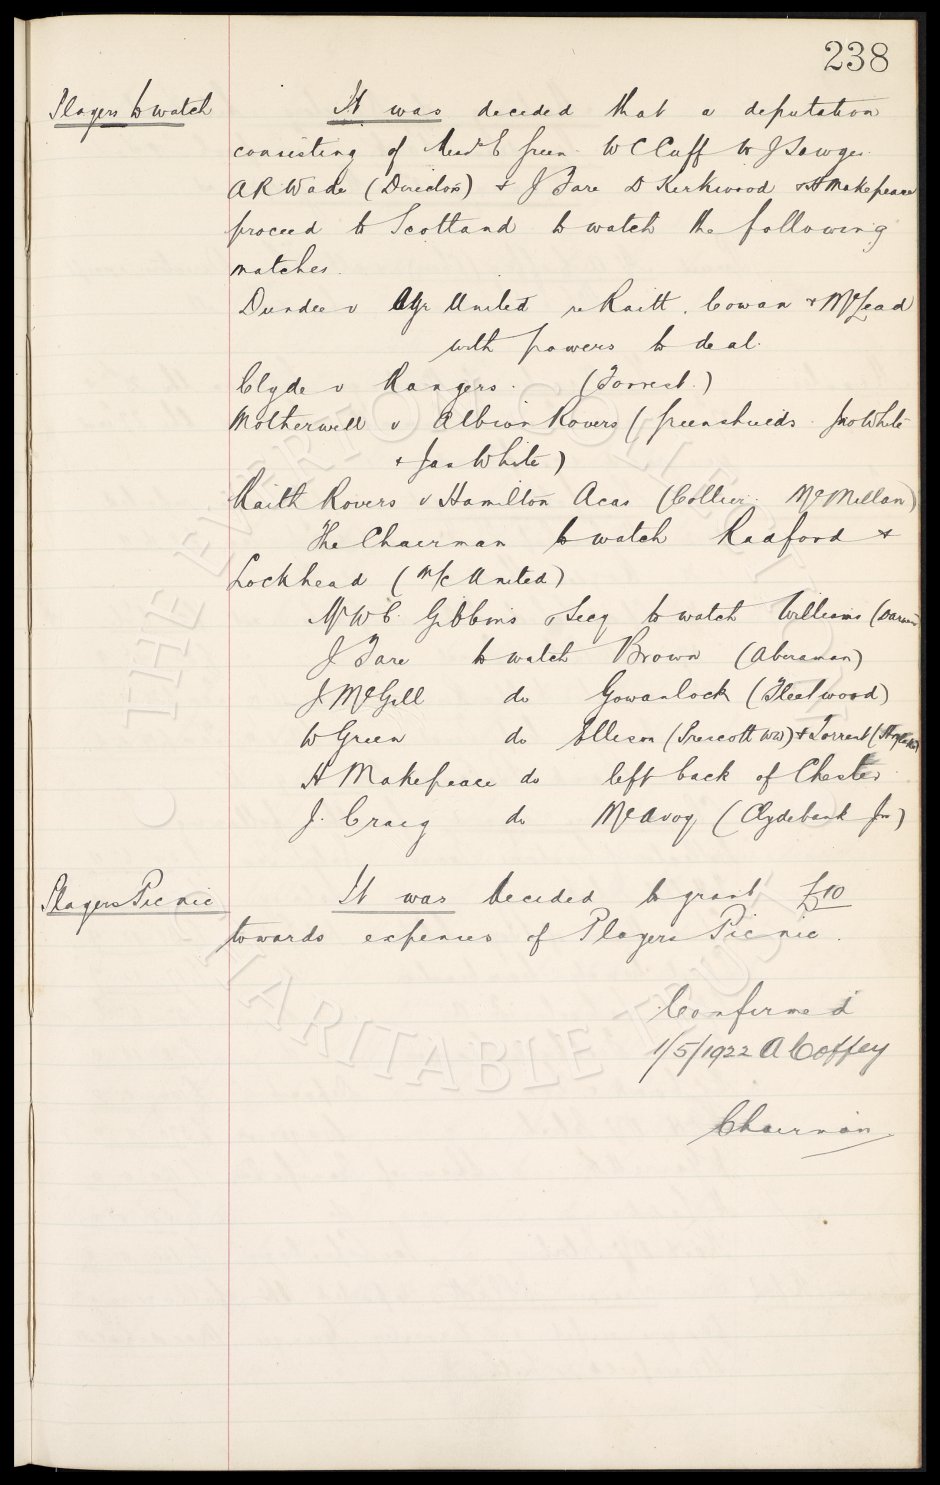 238
Players to watch It was decided that a deputation
consisting of Messrs E Green W C Cuff W J Sawyer
A R Wade (Directors) & J Fare D Kirkwood & H Makepeace
proceed to Scotland to watch the following
matches.
Dundee v Ayr United re Raitt, Cowan & McLead
with powers to deal.
Clyde v Rangers. (Forrest.)
Motherwell v Albion Rovers (Greenshields Jno White
& Jas White)
Raith Rovers v Hamilton Acas (Collier. McMillan)
The Chairman to watch Radford &
Lockhead (M/c United)
Mr W C Gibbins & Secy to watch Williams (Darwen
J Fare to watch Brown (Aberaman)
J McGill do Gowanlock (Fleetwood)
W Green do Ellison (Prescott WW) & Torrent (
H Makepeace do left back of Chester
J. Craig do McAvoy (Clydebank Jrs)
Players Picnic It was decided to grant £10
towards expenses of Players Picnic.
Confirmed
1/5/1922 A Coffey
Chairman
© THE EVERTON COLLECTION CHARITABLE TRUST